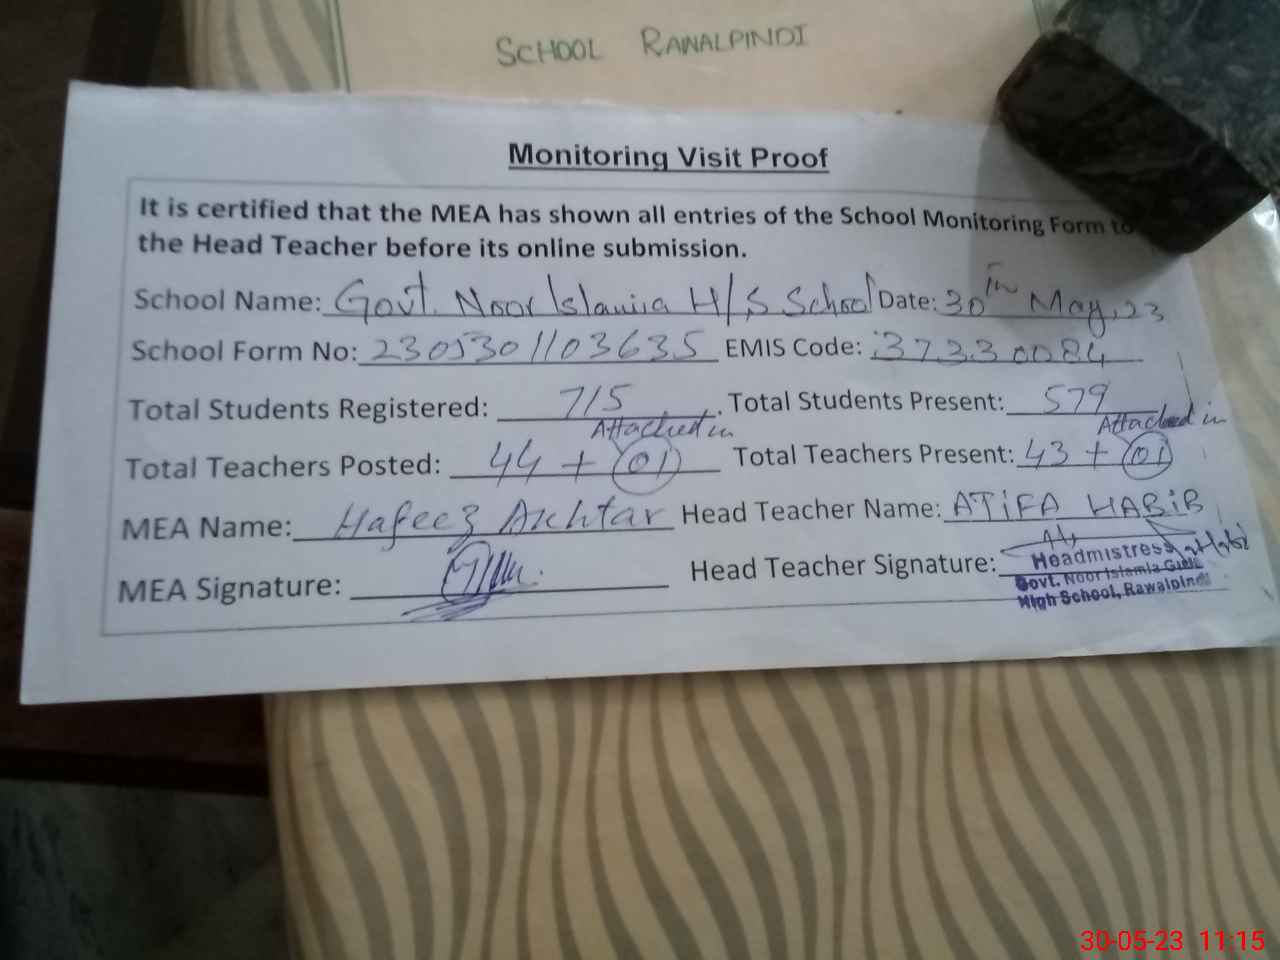 SCHOOL RAWALPINDI
Monitoring Visit Proof
It is certified that the MEA has shown all entries of the School Monitoring Form to
the Head Teacher before its online submission.
School Name: Govt. Noor Islamia H/S School Date: 30th May, 23
School Form No: 2305301103635 EMIS Code: 37330084
Total Students Registered: 715 Total Students Present: 579
Attached in Attached in
Total Teachers Posted: 44 + 01 Total Teachers Present: 43 + 01
MEA Name: Hafeez Akhtar Head Teacher Name: ATIFA HABIB
MEA Signature: Head Teacher Signature:
Headmistress
Govt. Noor Islamia Girls
High School, Rawalpindi
30-05-23 11:15